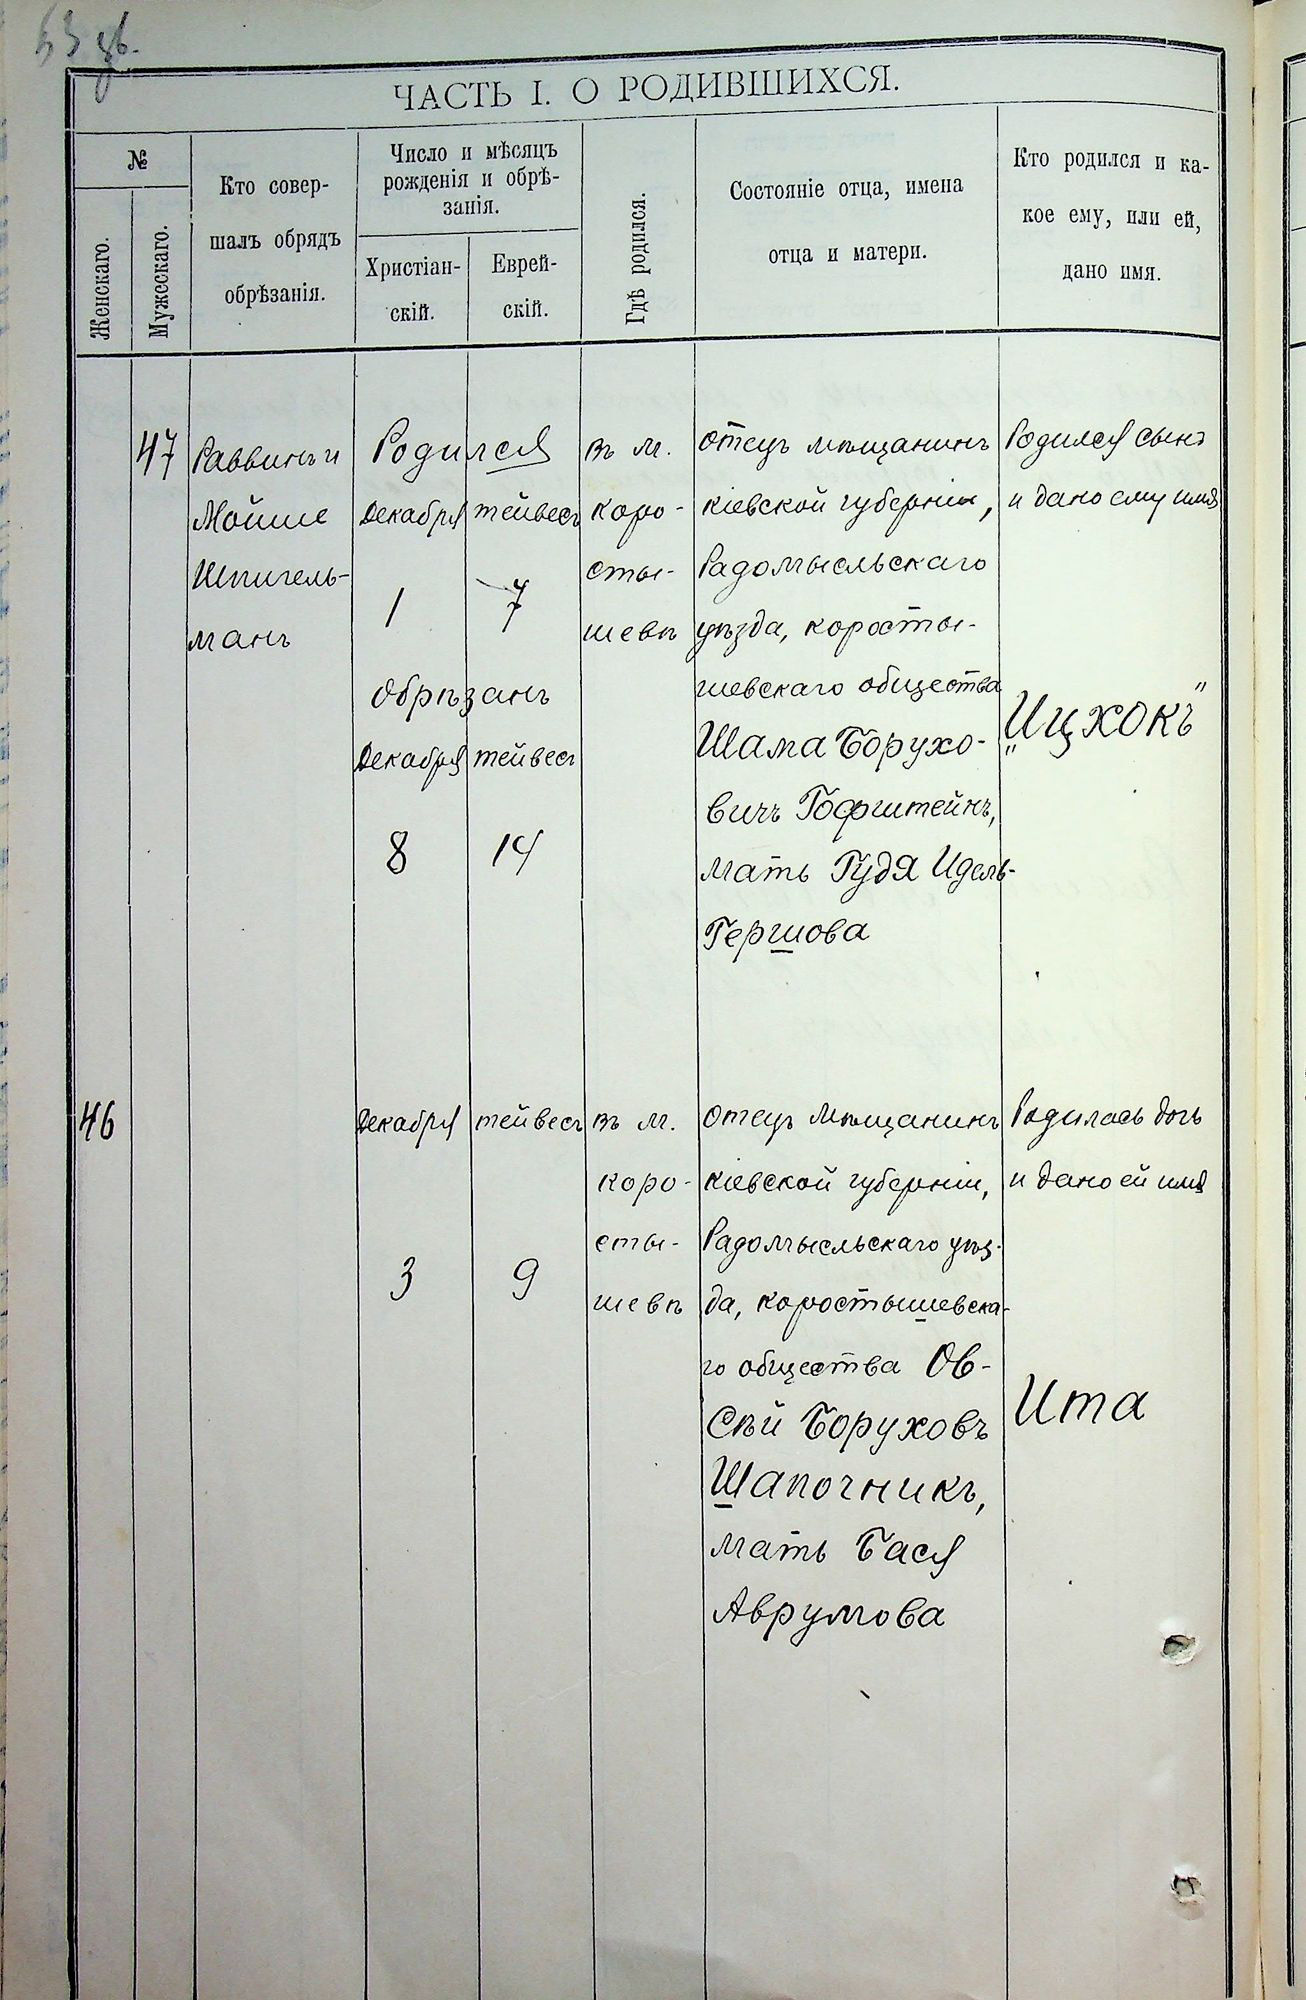 53 зв.
ЧАСТЬ I. О РОДИВШИХСЯ.
№
Женскаго.
Мужескаго.
Кто совер-
шалъ обрядъ
обрѣзанія.
Число и мѣсяцъ
рожденія и обрѣ-
занія.
Христіан-
скій.
Еврей-
скій.
Гдѣ родился.
Состояніе отца, имена
отца и матери.
Кто родился и ка-
кое ему, или ей,
дано имя.
47
Раввинъ и
Мойше
Шпигель-
манъ
Родился
Декабря
1
тейвесъ
7
Обрѣзанъ
Декабря
8
тейвесъ
14
въ м.
коро-
сты-
шевѣ
отецъ мѣщанинъ
кіевской губерніи,
Радомысльскаго
уѣзда, коросты-
шевскаго общества
Шама Борухо-
вичъ Гофштейнъ,
мать Гудя Идель-
Гершова
Родился сынъ
и дано ему имя
„Ицхокъ"
46
Декабря
3
тейвесъ
9
въ м.
коро-
сты-
шевѣ
отецъ мѣщанинъ
кіевской губерніи,
Радомысльскаго уѣз-
да, коростышевска-
го общества Ов-
сѣй Боруховъ
Шапочникъ,
мать Бася
Аврумова
Родилась дочь
и дано ей имя
Ита